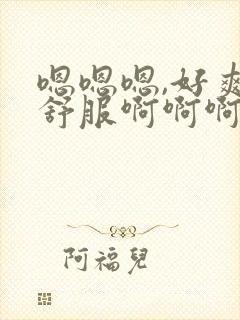 嗯嗯嗯,好爽
舒服啊啊啊
阿福兒